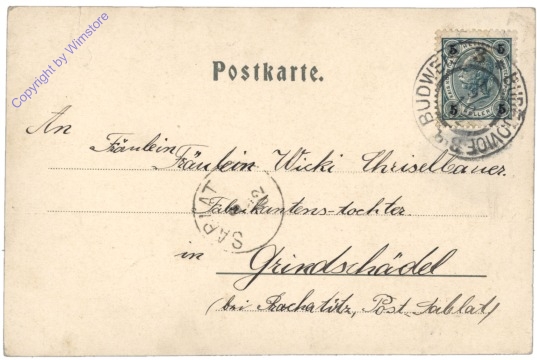 Copyright by Wimstore
Postkarte.
5 5
5 5
BUDWE
An
Fräulein
Fräulein Wicki Chriselbauer.
Fabrikantens-tochter
SABLAT
in Grindschädel
(bei Prachatitz, Post Sablat)